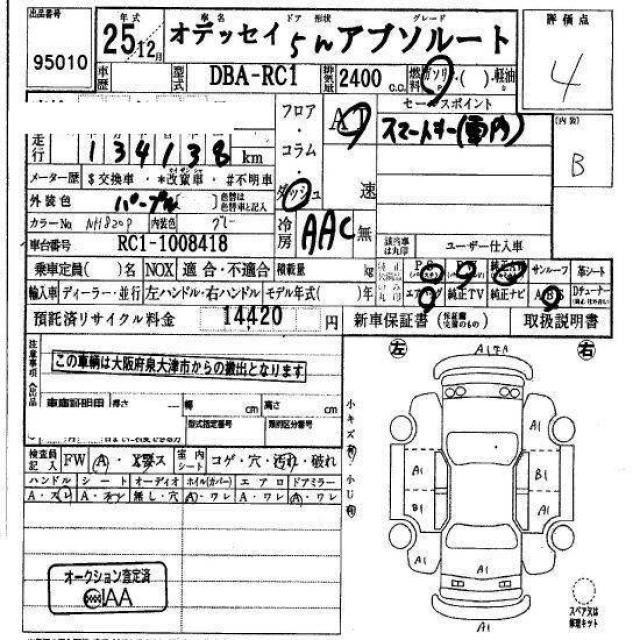 出品番号
95010
年式
25.12月
車名 ドア 形状 グレード
オデッセイ 5D アブソルート
評価点
4
車歴
型式 DBA-RC1
排気量 2400 c.c.
燃料 ガソリン・( )・軽油
走行 134138 km
フロア・コラム・ダッシュ
AT 速
セールスポイント
スマートキー(電内)
内装
B
メーター歴 $ 交換車・*改竄車・#不明車
外装色 パープル( )
色替は色替車と記入
カラーNo NH820P 内装色 グレー
冷房 AAC 無
該当事は丸印
ユーザー仕入車
車台番号 RC1-1008418
乗車定員( )名 NOX 適合・不適合 積載量 kg
サンルーフ 革シート
輸入車 ディーラー・並行 左ハンドル・右ハンドル モデル年式( )年
エアB 純正TV 純正ナビ ABS
預託済リサイクル料金 14,420 円
新車保証書 取扱説明書
注意事項
この車輌は大阪府泉大津市からの搬出となります
車庫証明用 長さ --- cm 幅 cm 高さ cm
型式指定番号 類別区分番号
左 右
小キズ有
小じ有
検査員記入 FW A・X要ス 室内シート コゲ・穴・汚れ・破れ
ハンドル シート オーディオ ホイル(カバー) エアロ ドアミラー
A・スレ A・スレ 無し・穴 A・ワレ A・ワレ A・ワレ
A1
A1
A1
B1
B1
A1
A1
A1
A1
A1
オークション査定済
IAA
スペアスは
修理キット